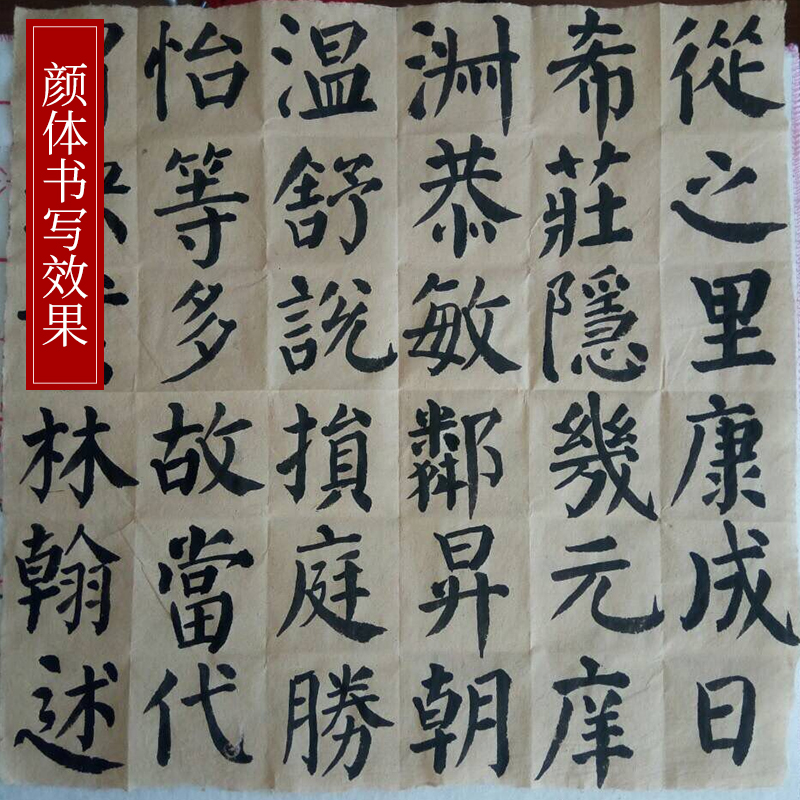 颜体书写效果
從之里康成日
希莊隱幾元庠
淵恭敏鄰昇朝
溫舒說損庭勝
怡等多故當代
林翰述